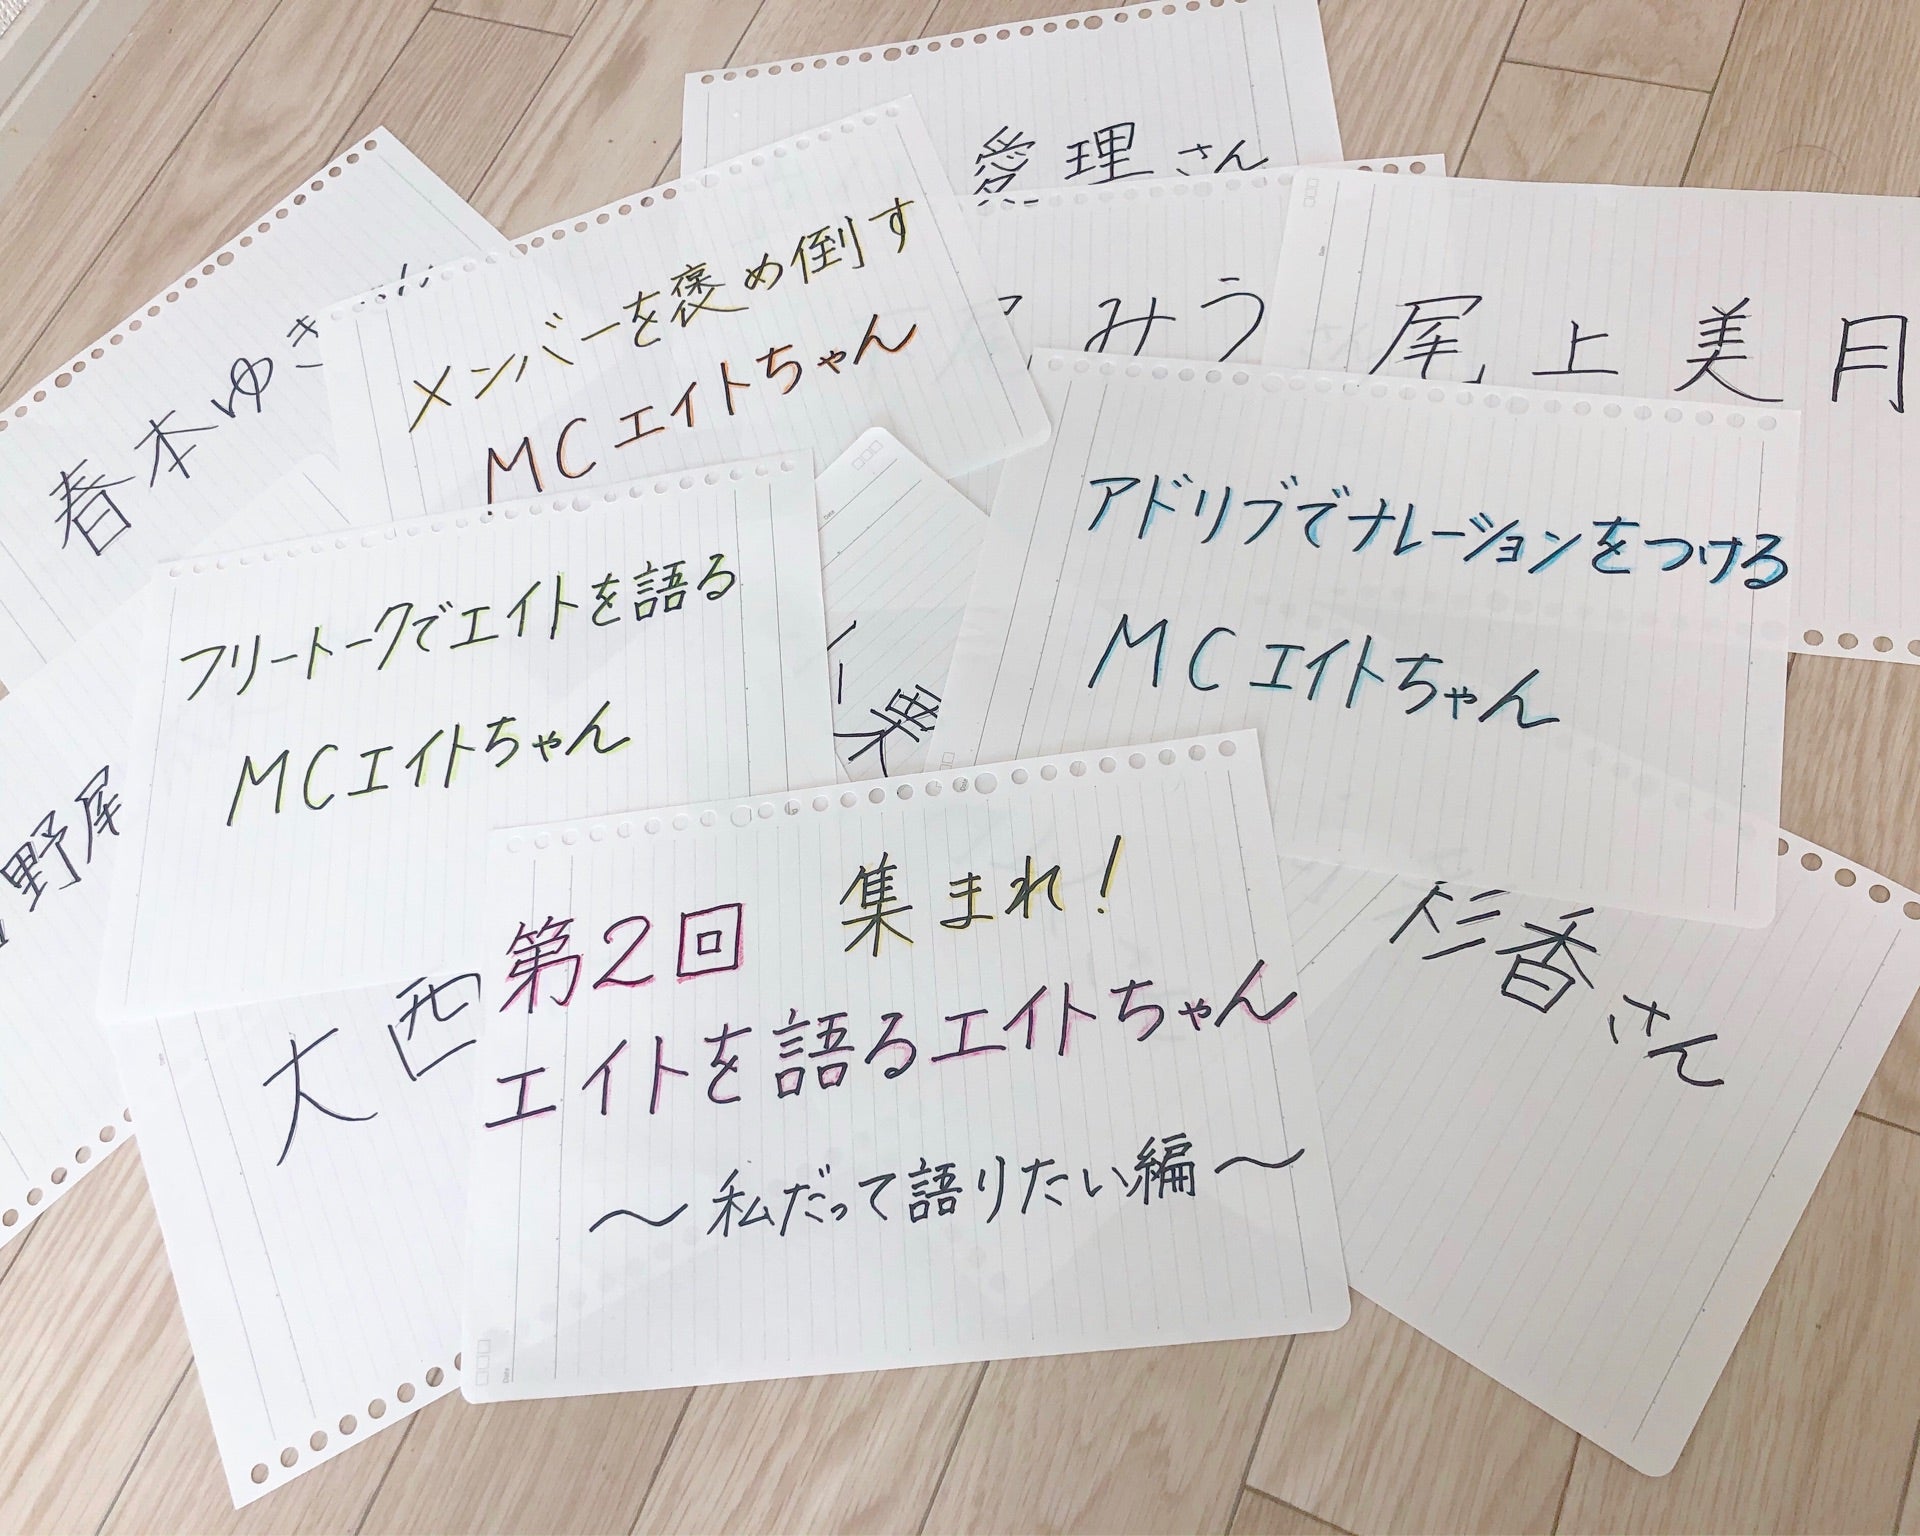 愛理さん
メンバーを褒め倒す
MCエイトちゃん
みう
尾上美月
春本ゆき
アドリブでナレーションをつける
MCエイトちゃん
フリートークでエイトを語る
MCエイトちゃん
野尾
大西
杉香さん
第2回 集まれ!
エイトを語るエイトちゃん
〜私だって語りたい編〜